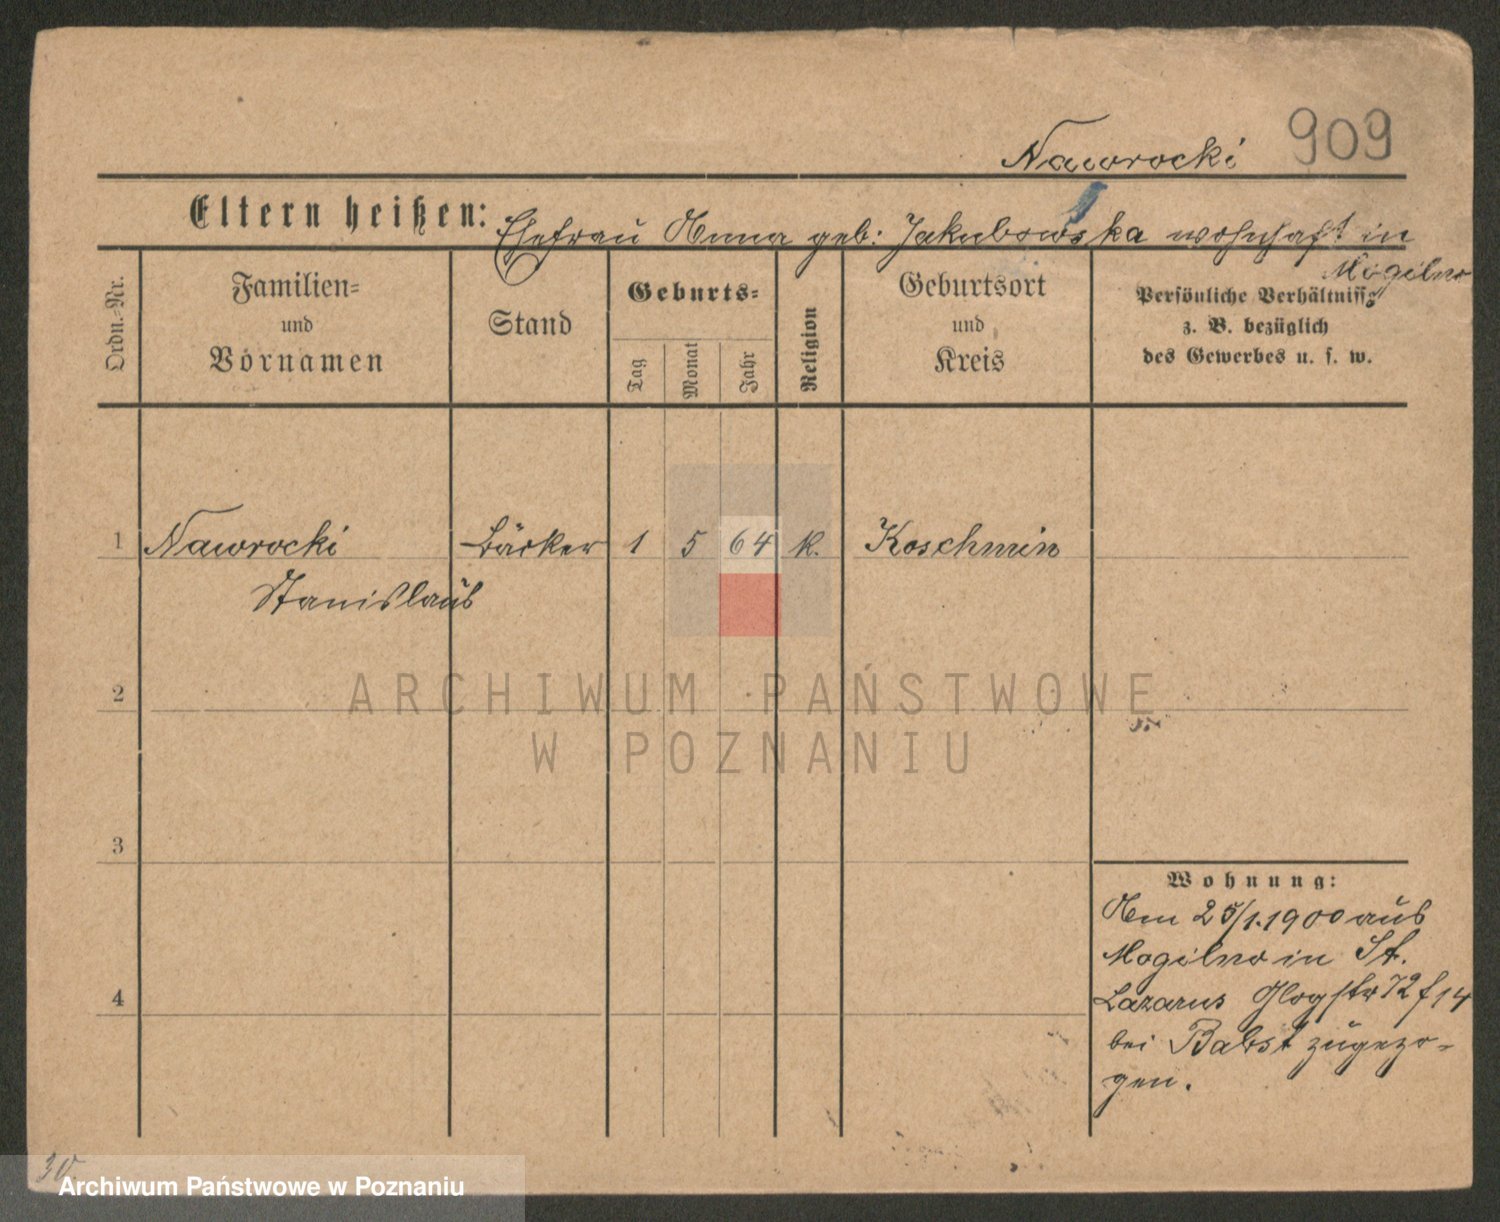 Nawrocki 909
Eltern heißen: Ehefrau Anna geb: Jakubowska wohnhaft in
Mogilno
Ordn.-Nr.
Familien-
und
Vornamen
Stand
Geburts-
Tag
Monat
Jahr
Religion
Geburtsort
und
Kreis
Persönliche Verhältnisse
z. B. bezüglich
des Gewerbes u. s. w.
1 Nawrocki Bäcker 1 5 64 K. Koschmin
Stanislaus
2
ARCHIWUM PAŃSTWOWE
W POZNANIU
3
Wohnung:
Am 25/1.1900 aus
Mogilno in St.
4
Lazarus Glogstr 72 f 14
bei Babst zugezo-
gen.
30.
Archiwum Państwowe w Poznaniu